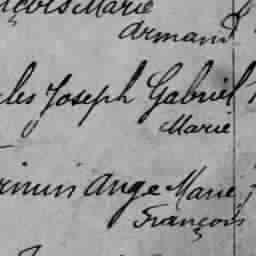 nçois Marie
Armand
les Joseph Gabriel
Marie
Ange Marie
François